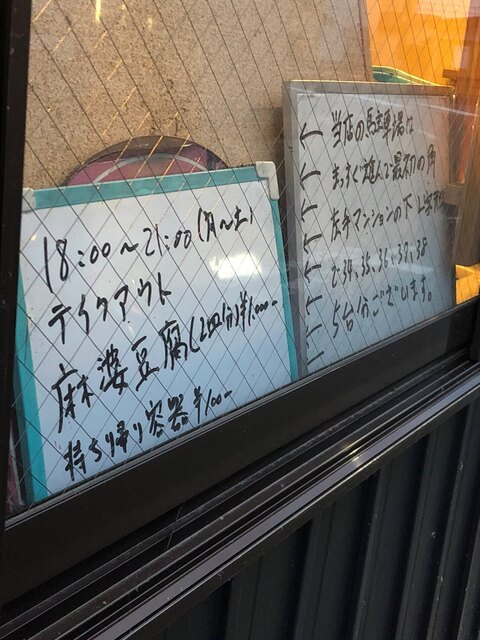 18:00〜21:00(月〜土)
テイクアウト
麻婆豆腐(2皿分)¥1,000-
持ち帰り容器¥100-
← 当店の駐車場は
← まっすぐ進んで最初の角
← 左手マンションの下
← 34、35、36、37、38
← 5台分ございます。